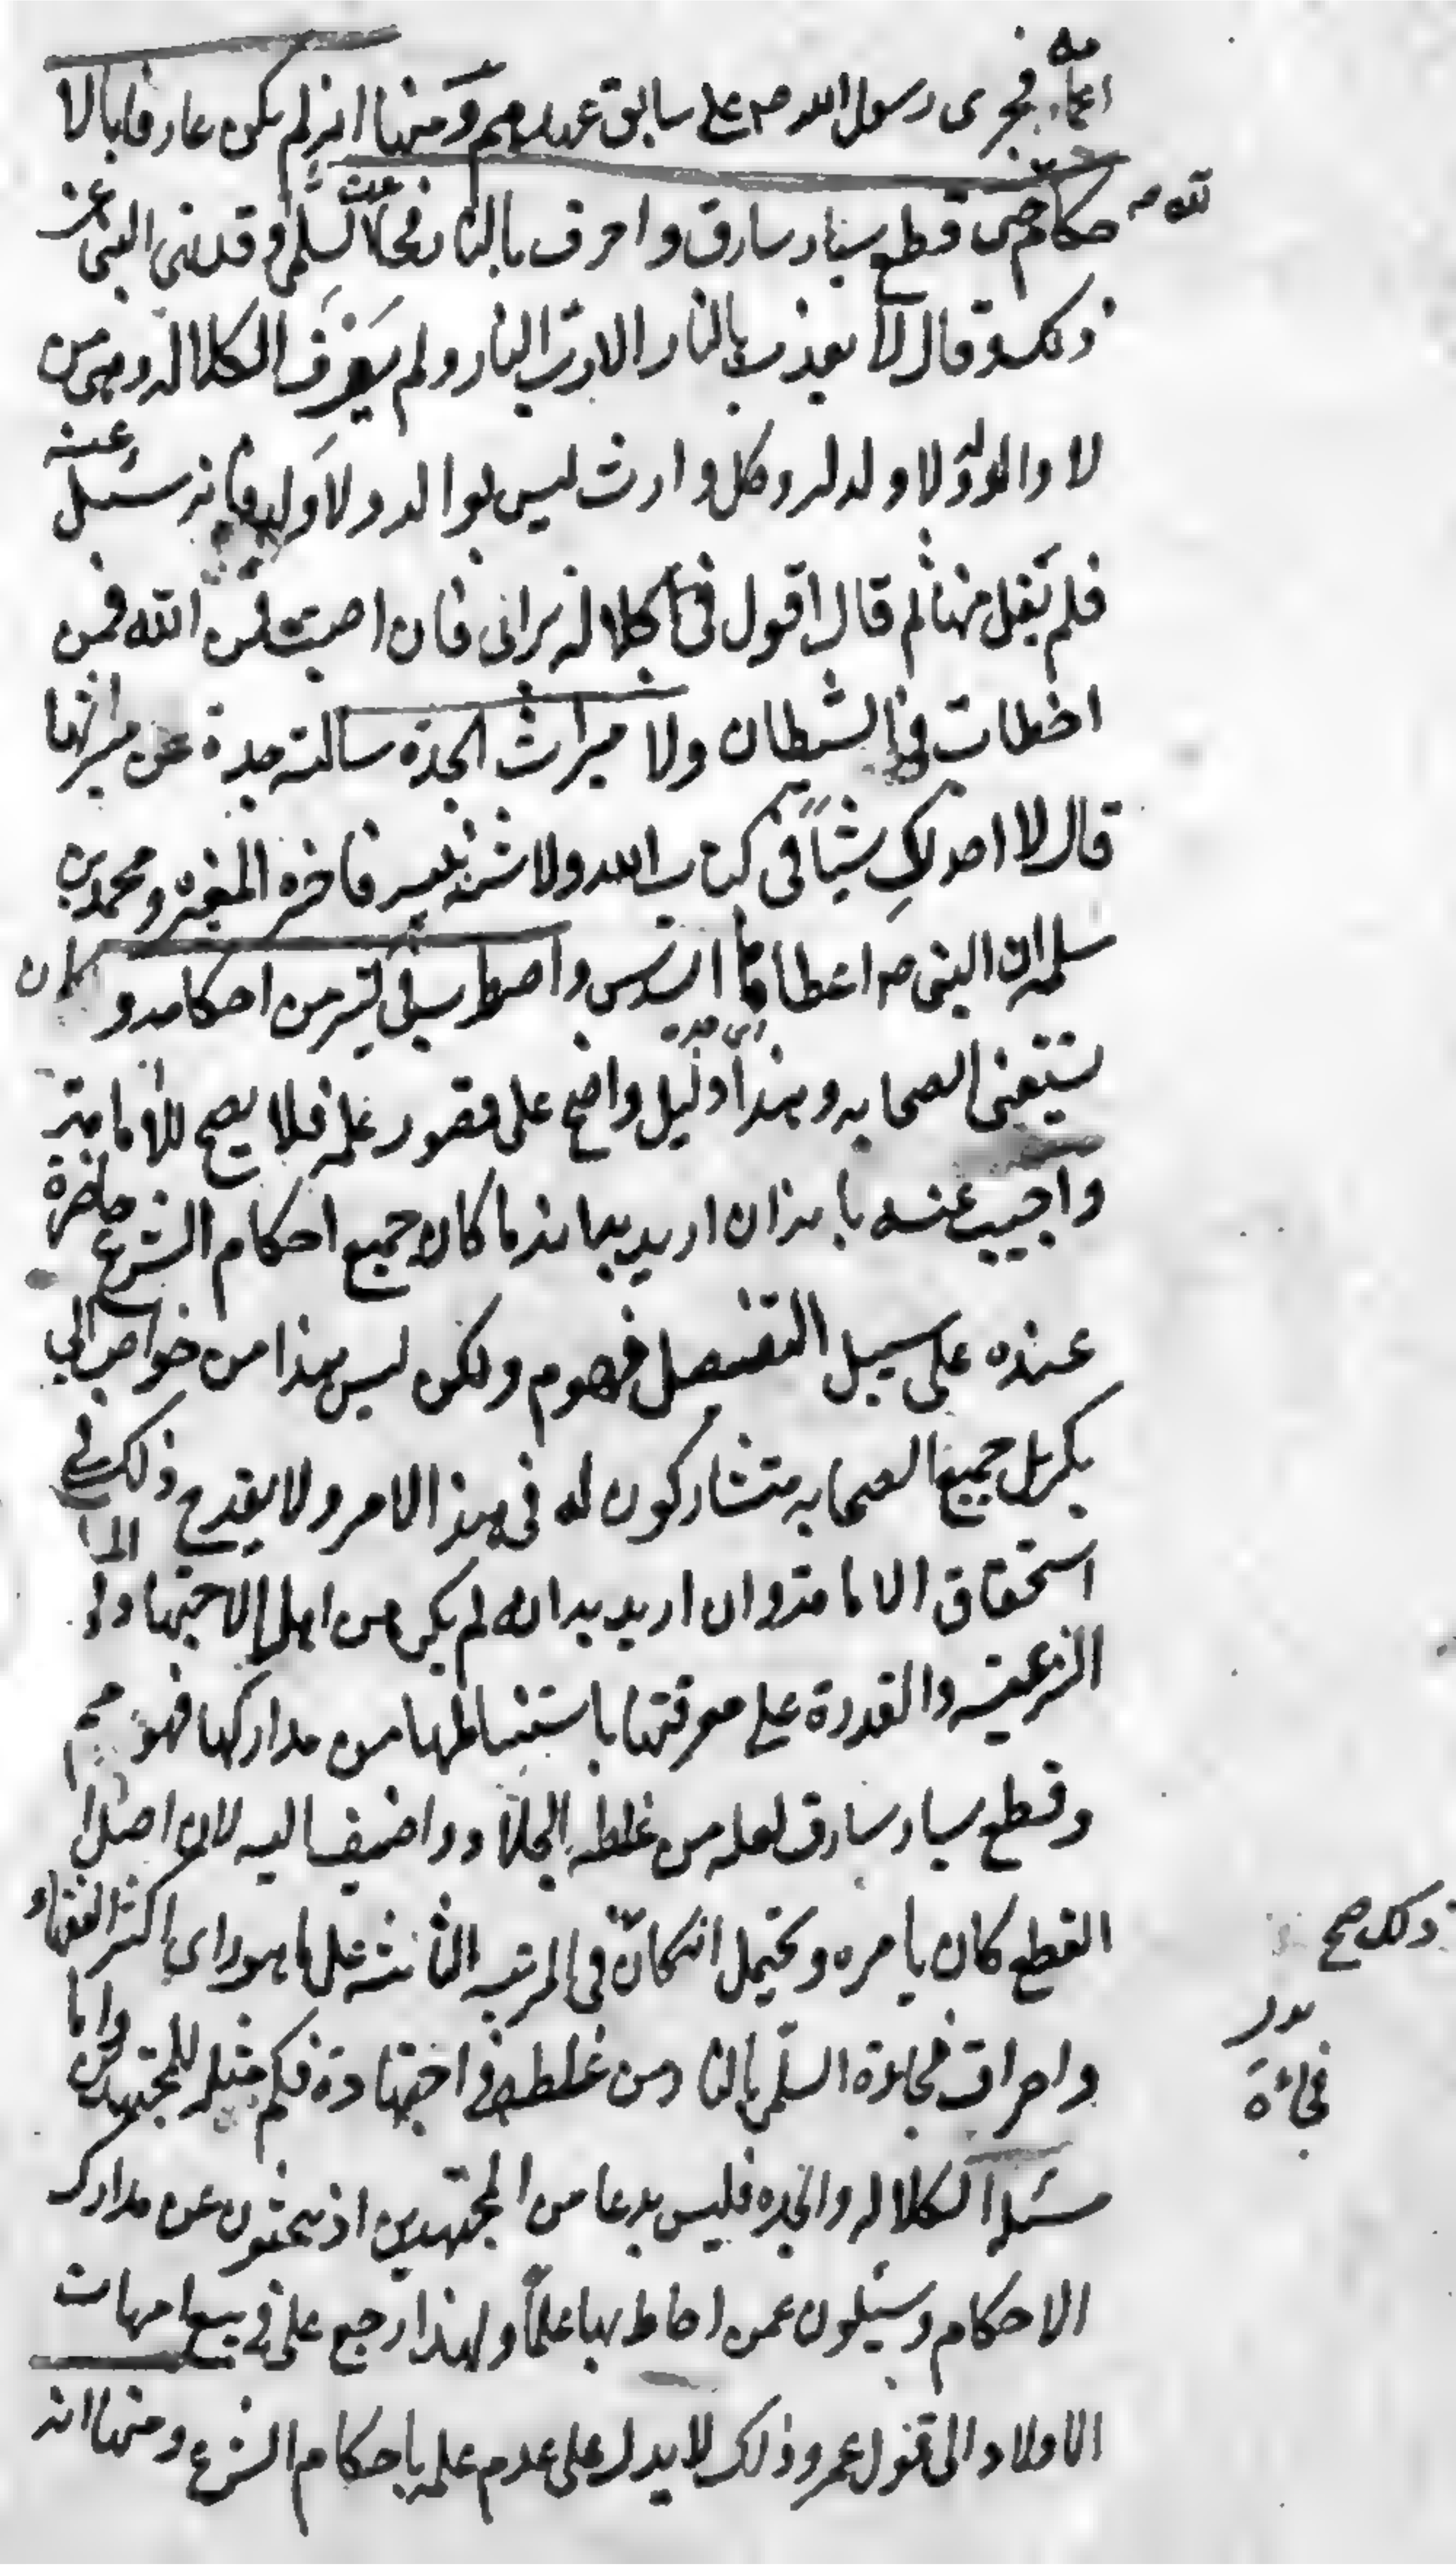 منه
اعمّا فجرى رسول الله صم على سابق عهدهم ومنها انه لم يكن عارفا بالا
حكام حتى قطع يسار سارق واحرق بالنار فجاة السلمى وقد نهى النبى عن
ذلك وقال لا يعذب بالنار الا رب النار ولم يعرف الكلالة وهى من
لا والد له ولا ولد له وكل وارث ليس بوالد ولا ولد فانه سئل عنه
فلم يقل فيها ثم قال اقول فى الكلالة برائى فان اصبت فمن الله فمن
اخطات فمن الشيطان ولا ميراث الجدة سالته جدة عن ميراثها
قال لا اجد لك شيئاً فى كتاب الله ولا سنة نبيه فاخبره المغيرة ومحمد بن
سلمه ان النبى صم اعطاها السدس واضطرب فى كثير من احكامه وكان
يستفتى الصحابه وهذا دليل واضح على قصور علمه فلا يصح للامامة
واجيب عنه بانه ان اريد بها انه ما كان جميع احكام الشرع حاضرة
عنده على سبيل التفصيل فهو م ولكن ليس هذا من خواص ابى
بكر بل جميع الصحابه متشاركون له فى هذا الامر ولا يقدح ذلك فى
استحقاق الامامة وان اريد به انه لم يكن من اهل الاجتهاد فى المسا
الشرعيه والقدرة على معرفتها باستنباطها من مداركها فهو مم
وقطع يسار سارق لعله من غلطه الجلاد واضيف اليه لان اصل
القطع كان يامره ويحتمل انه كان فى المرتبه الثالثة على ما هو راى اكثر الفقهاء
واحراق فجاءة السلمى بالنار من غلطه فى اجتهاده فكم مثله للمجتهدين واما
مسئلة الكلاله والجده فليس بدعا من المجتهدين اذ يبحثون عن مدارك
الاحكام ويسئلون عمن احاط بها علماً ولهذا رجع على فى بيع امهات
الاولاد الى قول عمر وذلك لا يدل على عدم علمه باحكام الشرع ومنها انه
ذلك صح
فجاءة